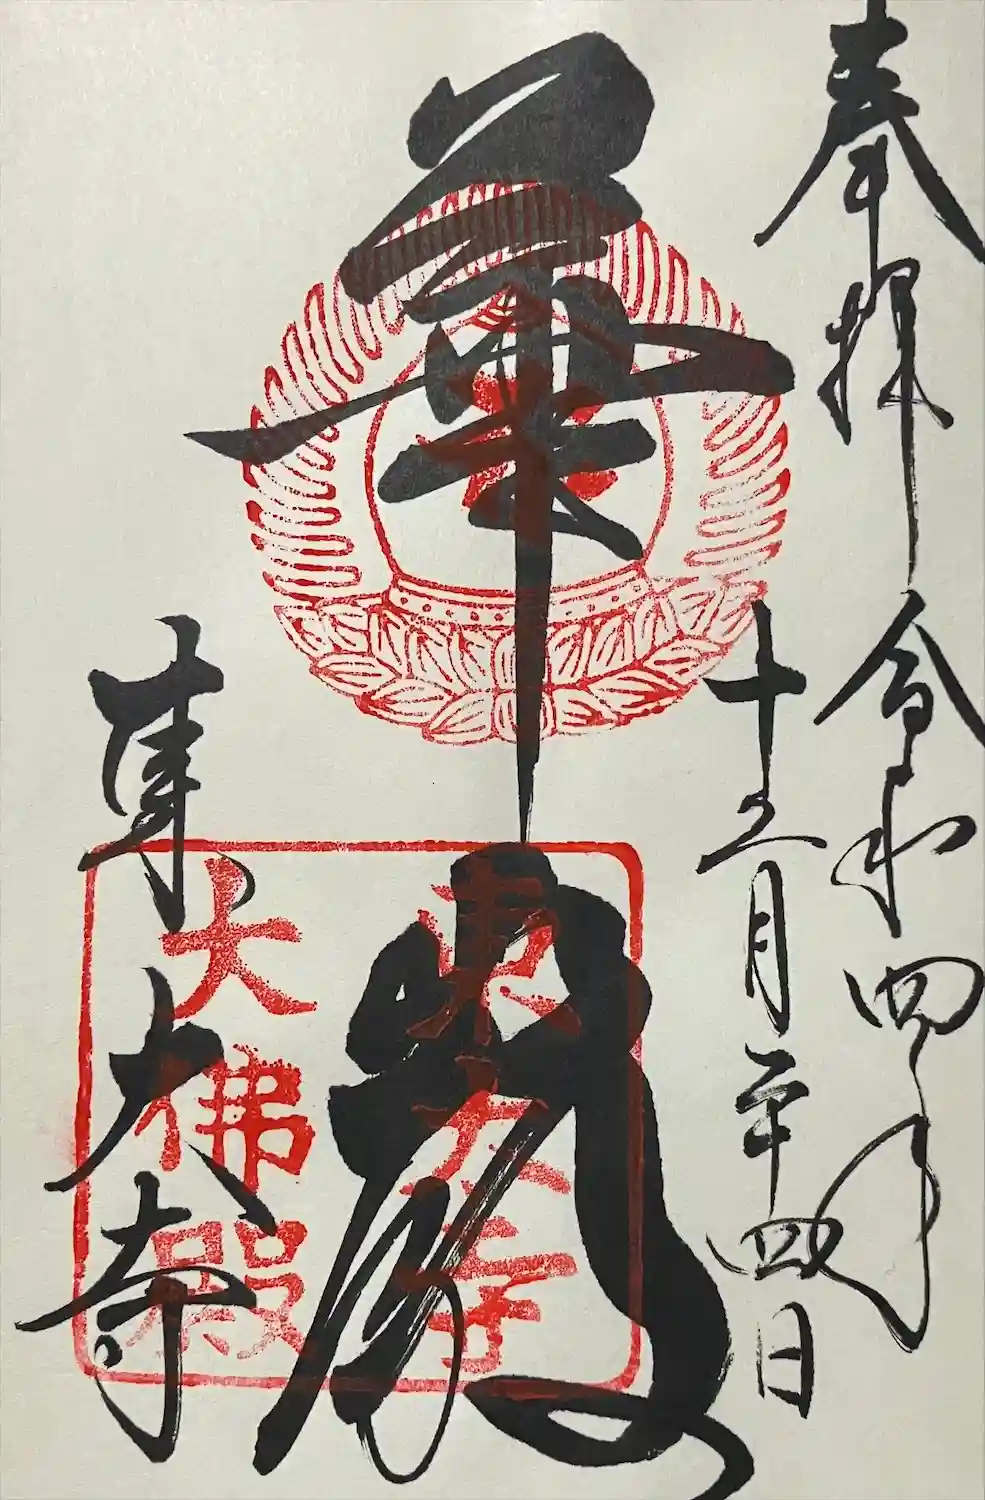 奉拝 令和四年
十二月二十四日
華厳
東大寺
東大寺
大佛殿